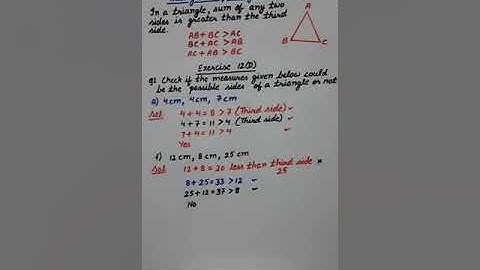 In a triangle, sum of any two
sides is greater than the third
side.
AB + BC > AC
BC + AC > AB
AC + AB > BC
A
B
C
Exercise 12(D)
Q1 Check if the measures given below could
be the possible sides of a triangle or not
a) 4 cm, 4 cm, 7 cm
Sol 4 + 4 = 8 > 7 (Third side) ✓
4 + 7 = 11 > 4 (Third side) ✓
7 + 4 = 11 > 4 ✓
Yes
f) 12 cm, 8 cm, 25 cm
Sol 12 + 8 = 20 less than third side ×
25
8 + 25 = 33 > 12 ✓
25 + 12 = 37 > 8 ✓
No